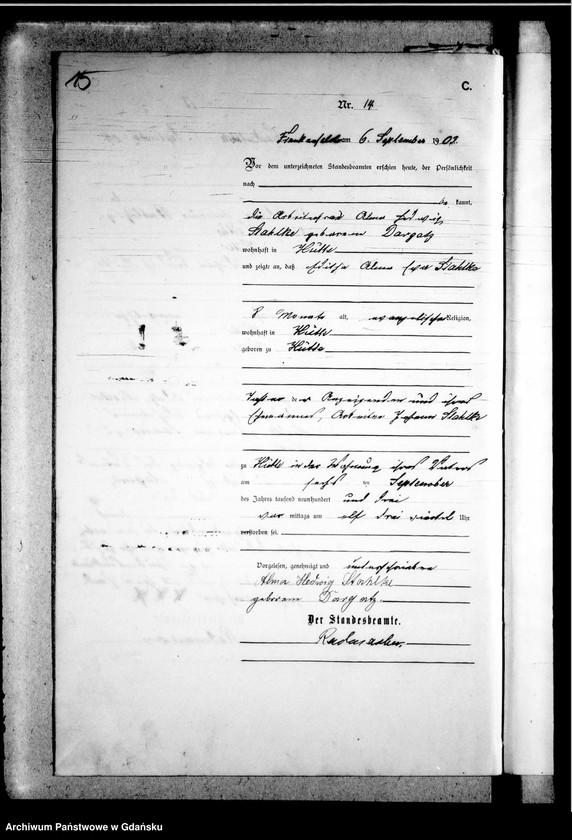 15
C.
Nr. 14
Frankenfelde am 6. September 1903.
Vor dem unterzeichneten Standesbeamten erschien heute, der Persönlichkeit
nach
be kannt,
die Arbeiterfrau Alma Hedwig
Stahlke geborene Dargatz
wohnhaft in Hütte
und zeigte an, daß Editha Alma Eva Stahlke
8 Monate alt, evangelischer Religion,
wohnhaft in Hütte
geboren zu Hütte
Tochter der Anzeigenden und ihres
Ehemannes, Arbeiter Johann Stahlke
zu Hütte in der Wohnung ihres Vaters
am sechs ten September
des Jahres tausend neunhundert und drei
vor mittags um elf drei viertel Uhr
verstorben sei.
Vorgelesen, genehmigt und unterschrieben
Alma Hedwig Stahlke
geborene Dargatz.
Der Standesbeamte.
Archiwum Państwowe w Gdańsku